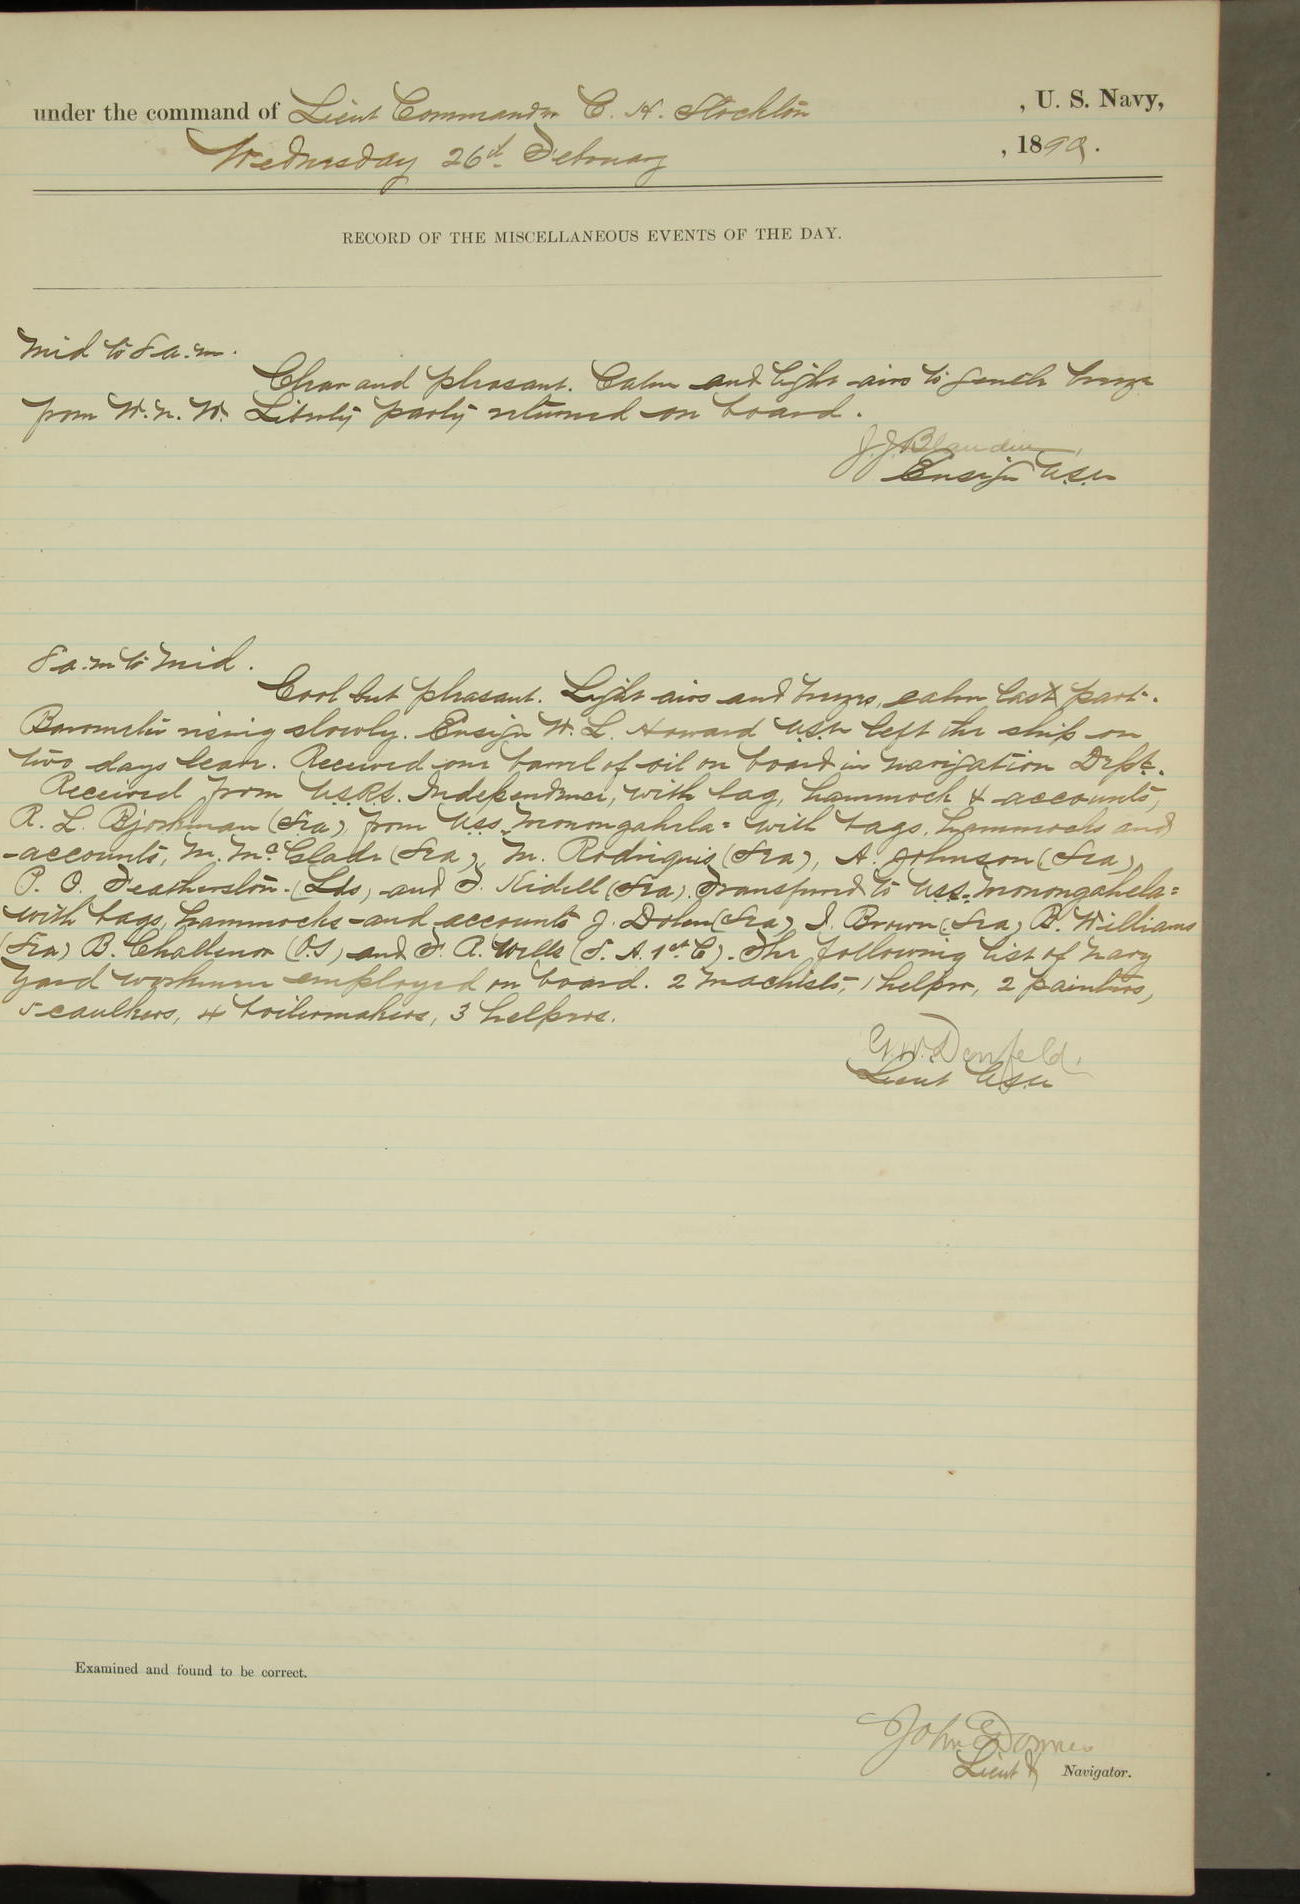 under the command of Lieut Commander C. H. Stockton , U. S. Navy,
Wednesday 26th February , 1890.
RECORD OF THE MISCELLANEOUS EVENTS OF THE DAY.
Mid to 8 a.m.
Clear and pleasant. Calm and light airs to gentle breeze
from W.N.W. Liberty party returned on board.
J. J. Blandin
Ensign U.S.N
8 a.m to Mid.
Cool but pleasant. Light airs and breezes, calm last part.
Barometer rising slowly. Ensign W. L. Howard U.S.N left the ship on
two days leave. Received one barrel of oil on board in navigation Dept.
Received from U.S.R.S. Independence, with bag, hammock & accounts,
R. L. Bjorkman (Sea) from U.S.S. Monongahela = with bags, hammocks and
accounts, M. McGlade (Sea), M. Rodriguis (Sea), A. Johnson (Sea),
P. O. Featherston (Lds) and F. Kidell (Sea). Transferred to U.S.S. Monongahela =
with bags, hammocks and accounts J. Dolen (Sea), J. Brown (Sea) B. Williams
(Sea) B. Challenor (O.S) and F. A. Wells (S. A. 1st C). The following list of Navy
Yard workmen employed on board. 2 machists, 1 helper, 2 painters,
5 caulkers, 4 boilermakers, 3 helpers.
G. W. Denfeld.
Lieut U.S.N
Examined and found to be correct.
John E
Lieut & Navigator.